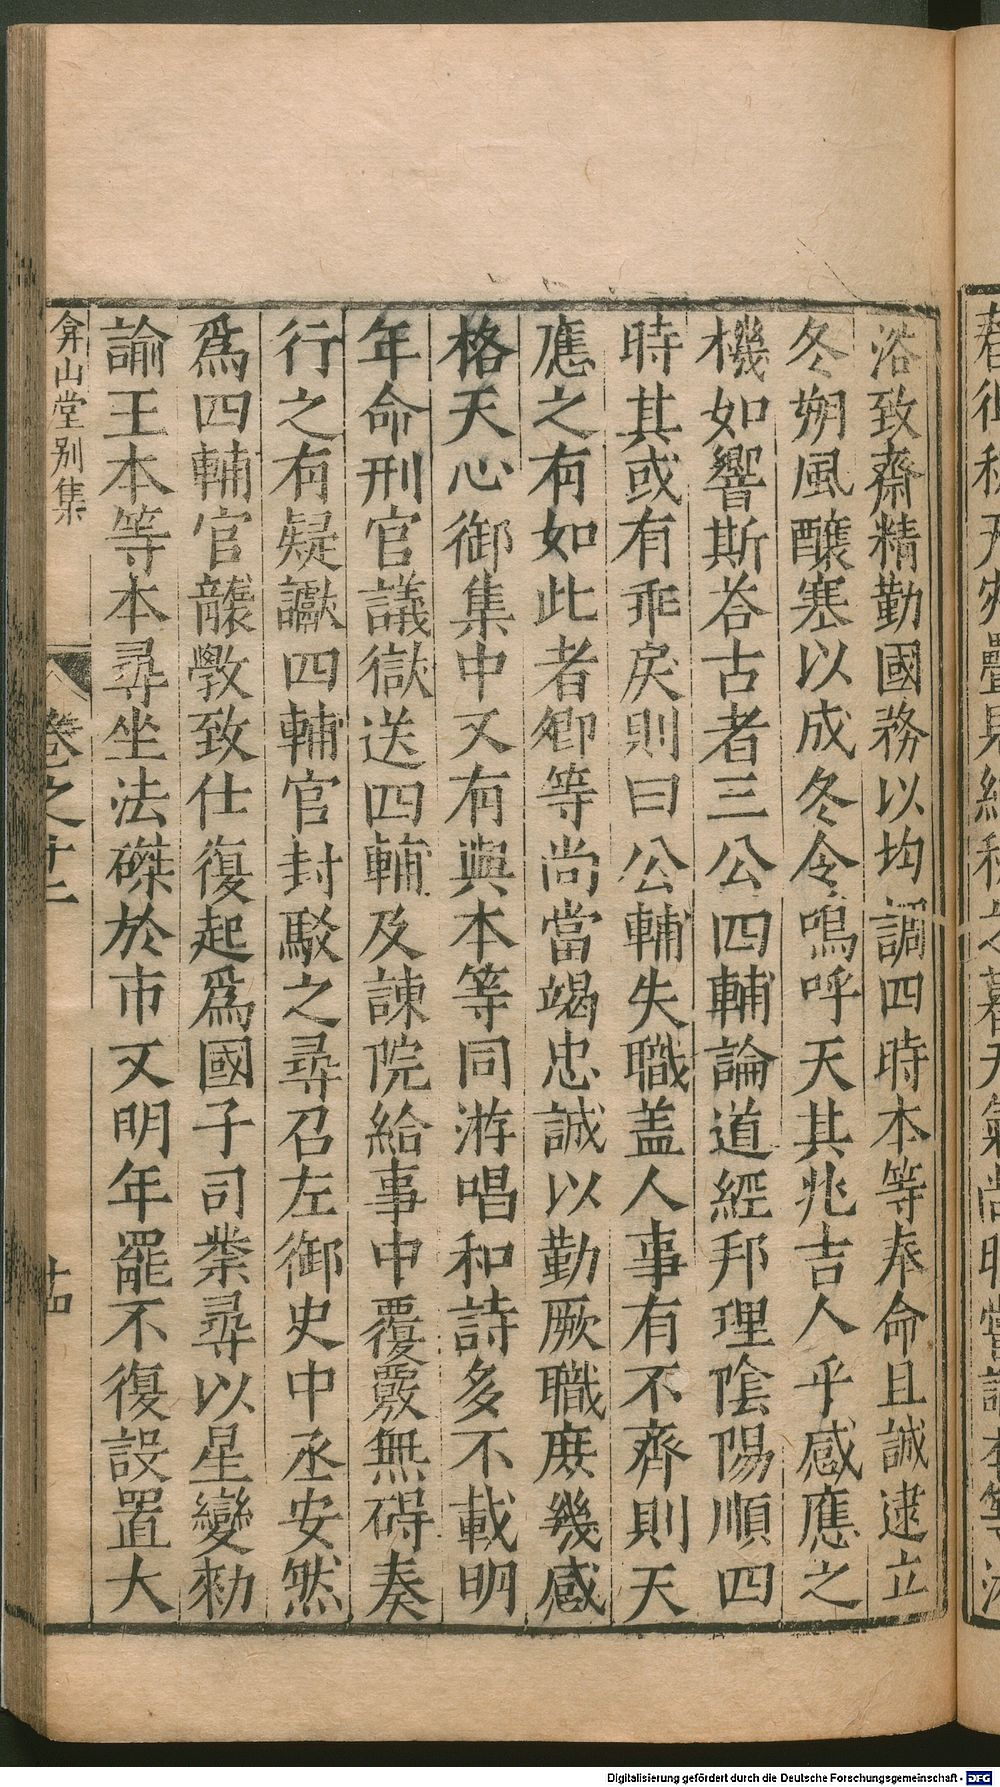 浴致齋精勤國務以均調四時本等奉命且誠逮立
冬朔風釀寒以成冬令嗚呼天其兆吉人乎感應之
機如響斯荅古者三公四輔論道經邦理陰陽順四
時其或有乖戾則曰公輔失職盖人事有不齊則天
應之有如此者卿等尚當竭忠誠以勤厥職庶幾感
格天心御集中又有與本等同游唱和詩多不載明
年命刑官議獄送四輔及諫院給事中覆覈無碍奏
行之有疑讞四輔官封駁之尋召左御史中丞安然
爲四輔官龔斆致仕復起爲國子司業尋以星變勑
諭王本等本尋坐法磔於市又明年罷不復設置大
弇山堂别集
卷之十二
十四